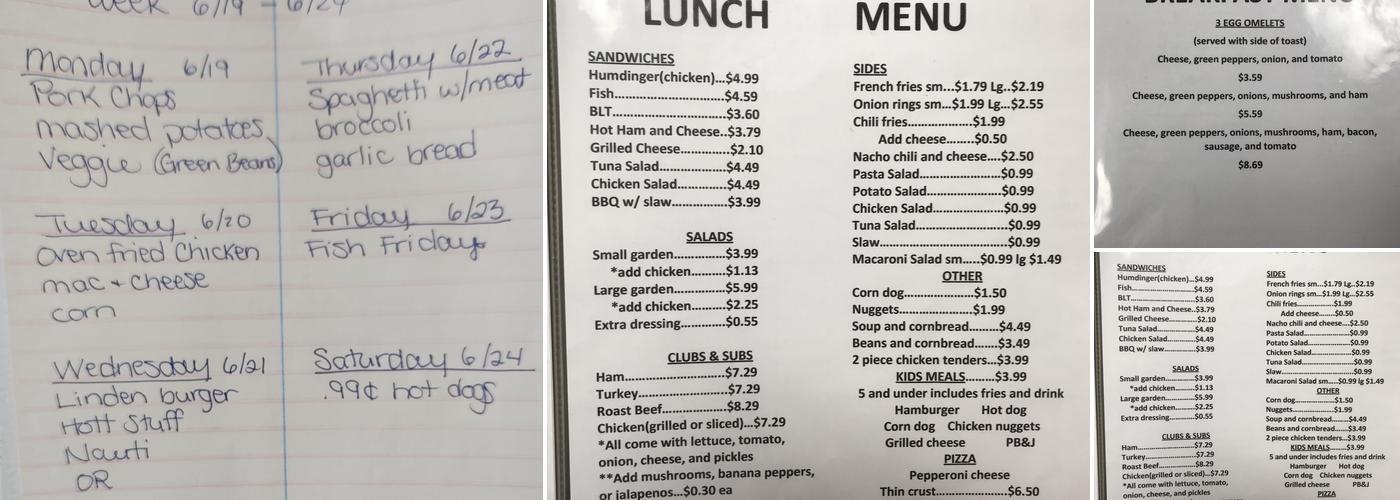 Week 6/19 - 6/24
Monday 6/19
Pork Chops
mashed potatoes
Veggie (Green Beans)
Tuesday 6/20
Oven fried Chicken
mac + cheese
corn
Wednesday 6/21
Linden burger
Hott Stuff
Nauti
OR
Thursday 6/22
Spaghetti w/meat
broccoli
garlic bread
Friday 6/23
Fish Friday
Saturday 6/24
.99¢ hot dogs
LUNCH MENU
SANDWICHES
Humdinger(chicken)...$4.99
Fish..............................$4.59
BLT...............................$3.60
Hot Ham and Cheese..$3.79
Grilled Cheese..............$2.10
Tuna Salad...................$4.49
Chicken Salad..............$4.49
BBQ w/ slaw................$3.99
SALADS
Small garden................$3.99
*add chicken..........$1.13
Large garden................$5.99
*add chicken..........$2.25
Extra dressing..............$0.55
CLUBS & SUBS
Ham..............................$7.29
Turkey..........................$7.29
Roast Beef....................$8.29
Chicken(grilled or sliced)...$7.29
*All come with lettuce, tomato,
onion, cheese, and pickles
**Add mushrooms, banana peppers,
or jalapenos...$0.30 ea
SIDES
French fries sm...$1.79 Lg..$2.19
Onion rings sm...$1.99 Lg...$2.55
Chili fries.....................$1.99
Add cheese..........$0.50
Nacho chili and cheese....$2.50
Pasta Salad....................$0.99
Potato Salad..................$0.99
Chicken Salad................$0.99
Tuna Salad.....................$0.99
Slaw...............................$0.99
Macaroni Salad sm.....$0.99 lg $1.49
OTHER
Corn dog.....................$1.50
Nuggets......................$1.99
Soup and cornbread.......$4.49
Beans and cornbread......$3.49
2 piece chicken tenders...$3.99
KIDS MEALS.........$3.99
5 and under includes fries and drink
Hamburger Hot dog
Corn dog Chicken nuggets
Grilled cheese PB&J
PIZZA
Pepperoni cheese
Thin crust....................$6.50
BREAKFAST MENU
3 EGG OMELETS
(served with side of toast)
Cheese, green peppers, onion, and tomato
$3.59
Cheese, green peppers, onions, mushrooms, and ham
$5.59
Cheese, green peppers, onions, mushrooms, ham, bacon,
sausage, and tomato
$8.69
SANDWICHES
Humdinger(chicken)...$4.99
Fish..............................$4.59
BLT...............................$3.60
Hot Ham and Cheese..$3.79
Grilled Cheese..............$2.10
Tuna Salad...................$4.49
Chicken Salad..............$4.49
BBQ w/ slaw................$3.99
SALADS
Small garden................$3.99
*add chicken..........$1.13
Large garden................$5.99
*add chicken..........$2.25
Extra dressing..............$0.55
CLUBS & SUBS
Ham..............................$7.29
Turkey..........................$7.29
Roast Beef....................$8.29
Chicken(grilled or sliced)...$7.29
*All come with lettuce, tomato,
onion, cheese, and pickles
SIDES
French fries sm...$1.79 Lg..$2.19
Onion rings sm...$1.99 Lg...$2.55
Chili fries.....................$1.99
Add cheese..........$0.50
Nacho chili and cheese....$2.50
Pasta Salad....................$0.99
Potato Salad..................$0.99
Chicken Salad................$0.99
Tuna Salad.....................$0.99
Slaw...............................$0.99
Macaroni Salad sm.....$0.99 lg $1.49
OTHER
Corn dog.....................$1.50
Nuggets......................$1.99
Soup and cornbread.......$4.49
Beans and cornbread......$3.49
2 piece chicken tenders...$3.99
KIDS MEALS.........$3.99
5 and under includes fries and drink
Hamburger Hot dog
Corn dog Chicken nuggets
Grilled cheese PB&J
PIZZA